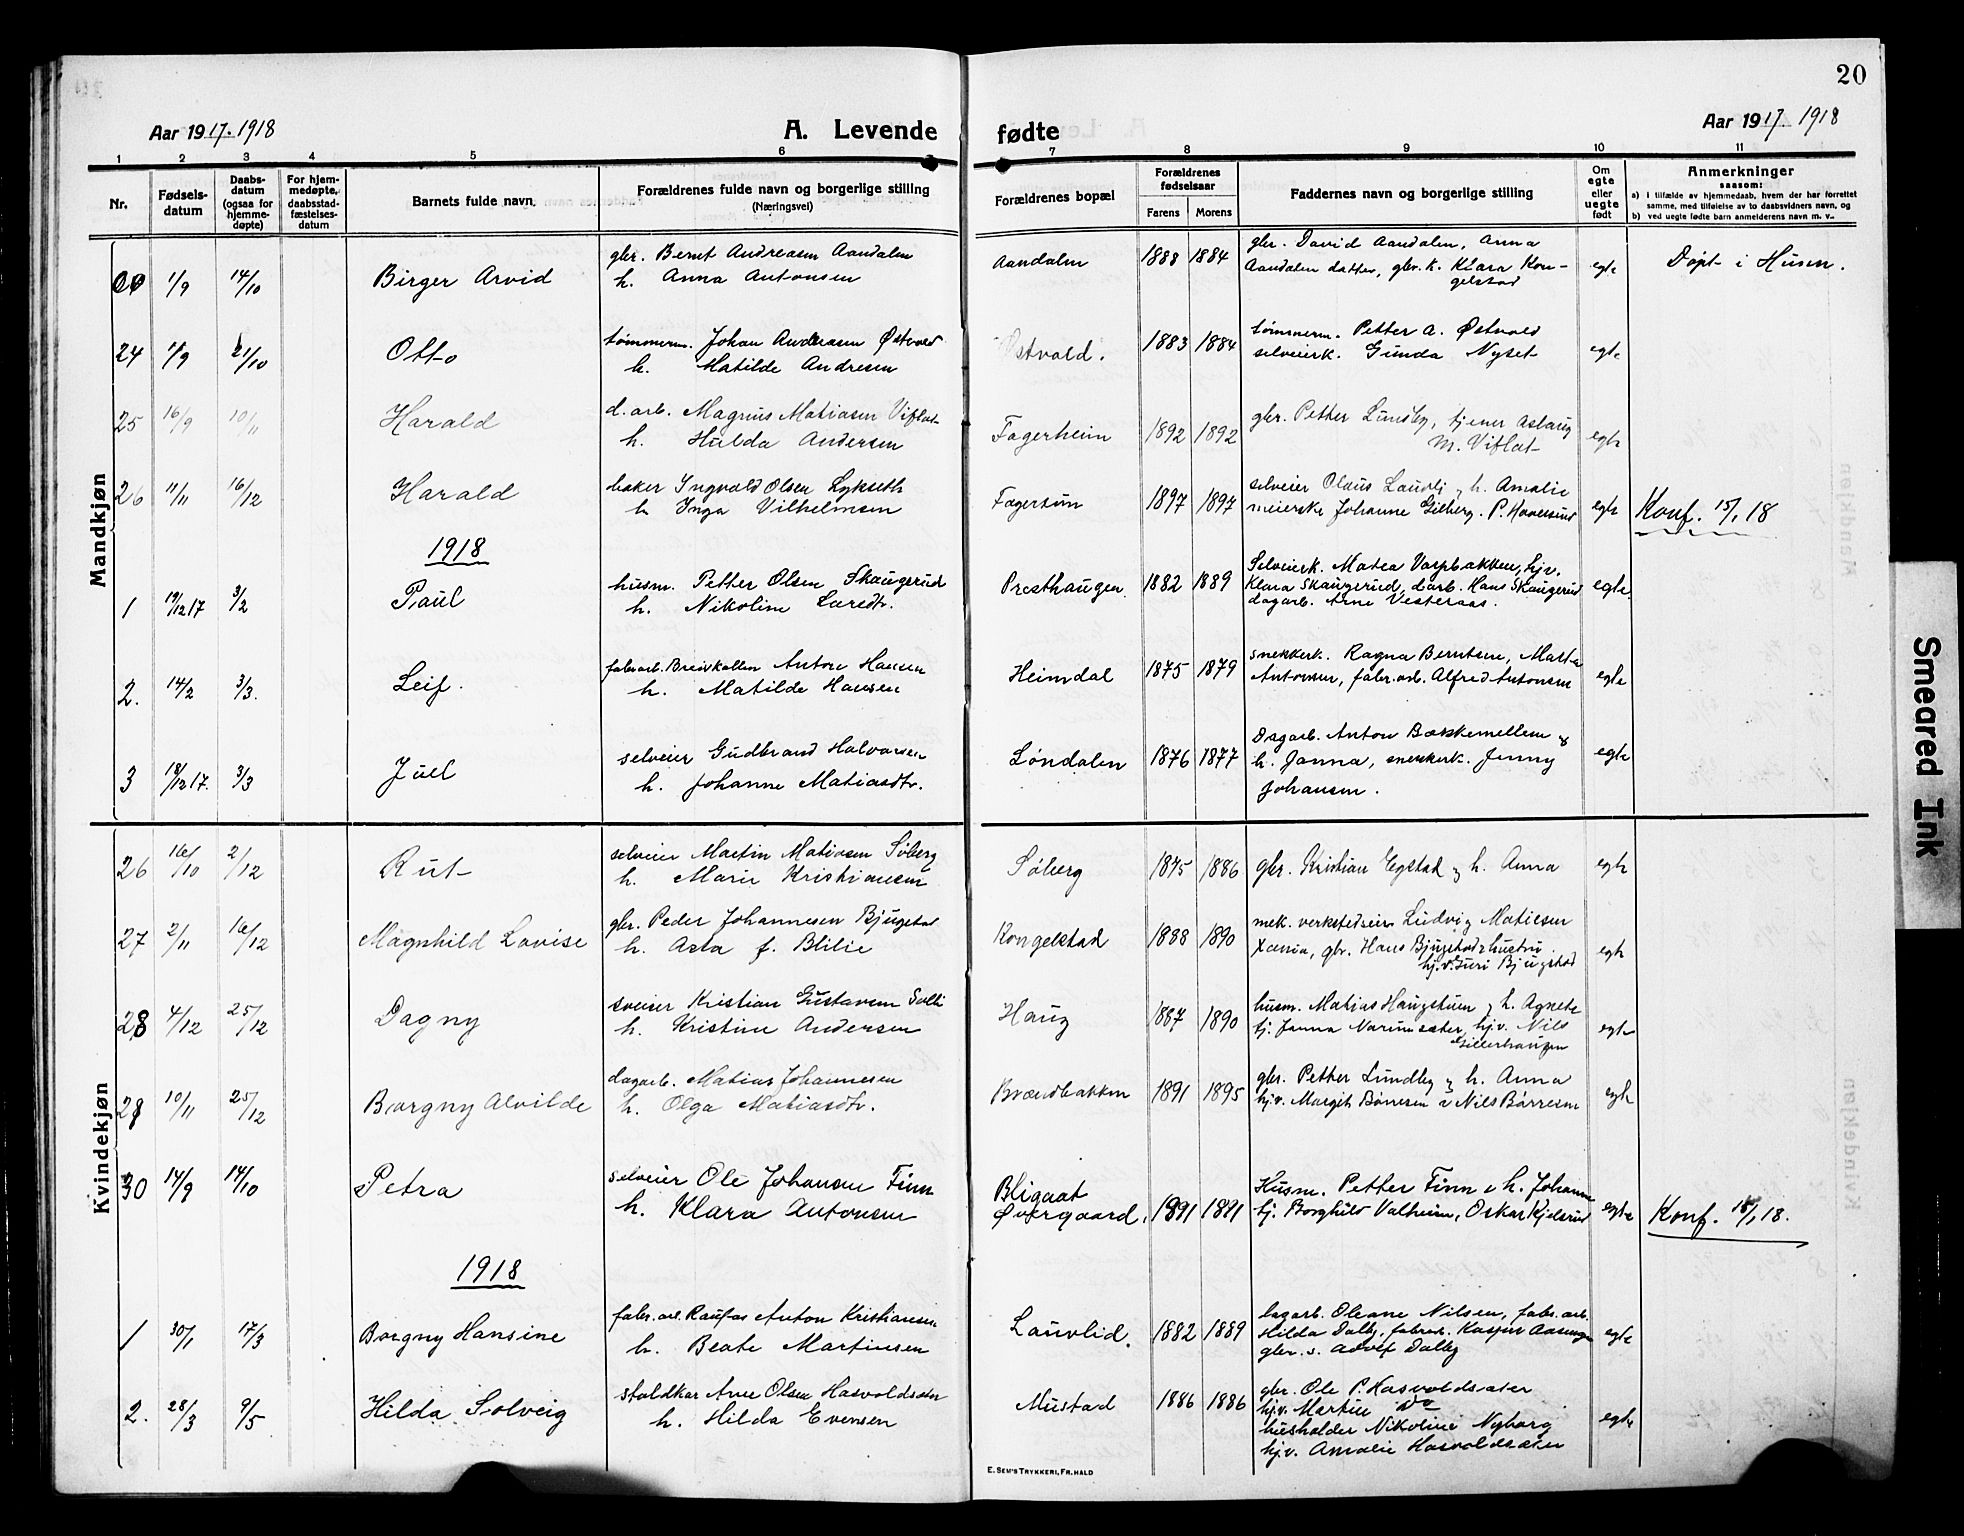 20
Aar 1917. 1918
A. Levende fødte
Aar 1917. 1918
1 2 3 4 5 6 7 8 9 10 11
Nr.
Fødsels-
datum
Daabs-
datum
(ogsaa for
hjemme-
døpte)
For hjem-
medøpte,
daabsstad-
fæstelses-
datum
Barnets fulde navn.
Forældrenes fulde navn og borgerlige stilling
(Næringsvei)
Forældrenes bopæl
Forældrenes
fødselsaar
Farens Morens
Faddernes navn og borgerlige stilling
Om
egte
eller
uegte
født
Anmerkninger
saasom:
a) i tilfælde av hjemmedaab, hvem der har forrettet
samme, med tilføielse av to daabsvidners navn, og
b) ved uegte fødte barn anmelderens navn m. v..
Mandkjøn
1/9 14/10 Birger Arvid
gbr. Bernt Andreasen Aandalen
h. Anna Antonsen
Aandalen 1888 1884
gbr. David Aandalen, Anna
Aandalen datter, gbr. k. Klara Kon-
gelstad
egte
Døpt i Hunn.
24 1/9 21/10 Otto
tømmerm. Johan Andersen Østvold
h. Matilde Andresen
Østvold. 1883 1884
tømmerm. Petter A. Østvold
selveierk. Gunda Nyset
egte
25 16/9 10/11 Harald
d.arb. Magnus Matiasen Viflat
h. Hulda Andersen
Fagerheim 1892 1892
gbr. Petter Lundby, tjener Aslaug
M. Viflat
egte
26 11/11 16/12 Harald
baker Ingvald Olsen Lykseth
h. Inga Vilhelmsen
Fagertun 1897 1897
selveier Olaus Laudlj og h. Amalie
meierske Johanne Gilberg. P. Haversund
egte
Konf. 15/1 18
1918
1 19/12 17 3/2 Paul
husm. Petter Olsen Skaugerud
h. Nikoline Larsdtr.
Presthaugen 1882 1889
Selveierk. Matea Varpbakken, hjv.
Klara Skaugerud, darb. Hans Skaugerud
dagarb. Arne Vesteraas.
egte.
2. 14/2 3/3. Leif.
fabr.arb. Breivkollen Anton Hansen
h. Matilde Hansen
Heimdal 1875 1879
snekkerk. Ragna Berntsen, Marta
Antonsen, fabr.arb. Alfred Antonsen
egte
3 18/12 17. 3/3 Juel
selveier Gudbrand Halvorsen
h. Johanne Matiasdtr.
Løndalen 1876 1877
Dagarb. Anton Bækkemellem og
h. Janna, snekkerk. Jenny
Johansen.
egte
Kvindekjøn
26 16/10 2/12 Rut
selveier Martin Matiasen Søberg
h. Marie Kristiansen
Søberg 1875 1886
gbr. Kristian Egstad og h. Anna
egte
27 2/11 16/12 Magnhild Lovise
gbr. Peder Johannesen Bjugstad
h. Asta f. Blilie
Kongelstad 1888 1890
mek. verkstedseier Ludvig Matiesen
Xenia, gbr. Hans Bjugstads hustru
hjv. Guri Bjugstad
egte
28 4/12 25/12 Dagny
sveier Kristian Gustavsen Solli
h. Kristine Andersen
Haug 1887 1890
husm. Matias Haugstuen og h. Agnete
tj. Janna Narumsæter, hjv. Nils
Gillerhaugen
egte
28 10/11 25/12 Borgny Alvilde
dagarb. Matias Johannesen
h. Olga Matiasdtr.
Brændbakken 1891 1895
gbr. Petter Lundby og h. Anna
hjv. Margit Børresen & Nils Børresen
egte
30 14/9 14/10 Petra
selveier Ole Johansen Finn
h. Klara Antonsen
Bligaat
Øvergaard, 1891 1891
Husm. Petter Finn & h. Johanne
tj. Borghild Valheim, Oskar Kjelsrud
egte
Konf. 15/1 18.
1918
1 30/1 17/3 Borgny Hansine
fabr.arb. Raufos Anton Kristiansen
h. Beate Martinsen
Lauvlid. 1882 1889
dagarb. Oleane Nilsen, fabr.arb.
Hilda Dalby, fabrarb. Kaspar
gbr. s. Adolf Dalby
egte
2. 28/3 9/5 Hilda Solveig
staldkar Arne Olsen Hasvoldsæter
h. Hilda Evensen
Mustad 1886 1886
gbr. Ole P. Hasvoldsæter
hjv. Martin do
husholder Nikoline Nyborg
hjv. Amalie Hasvoldsæter
egte
E. SEM'S TRYKKERI, FR.HALD
Smeared Ink